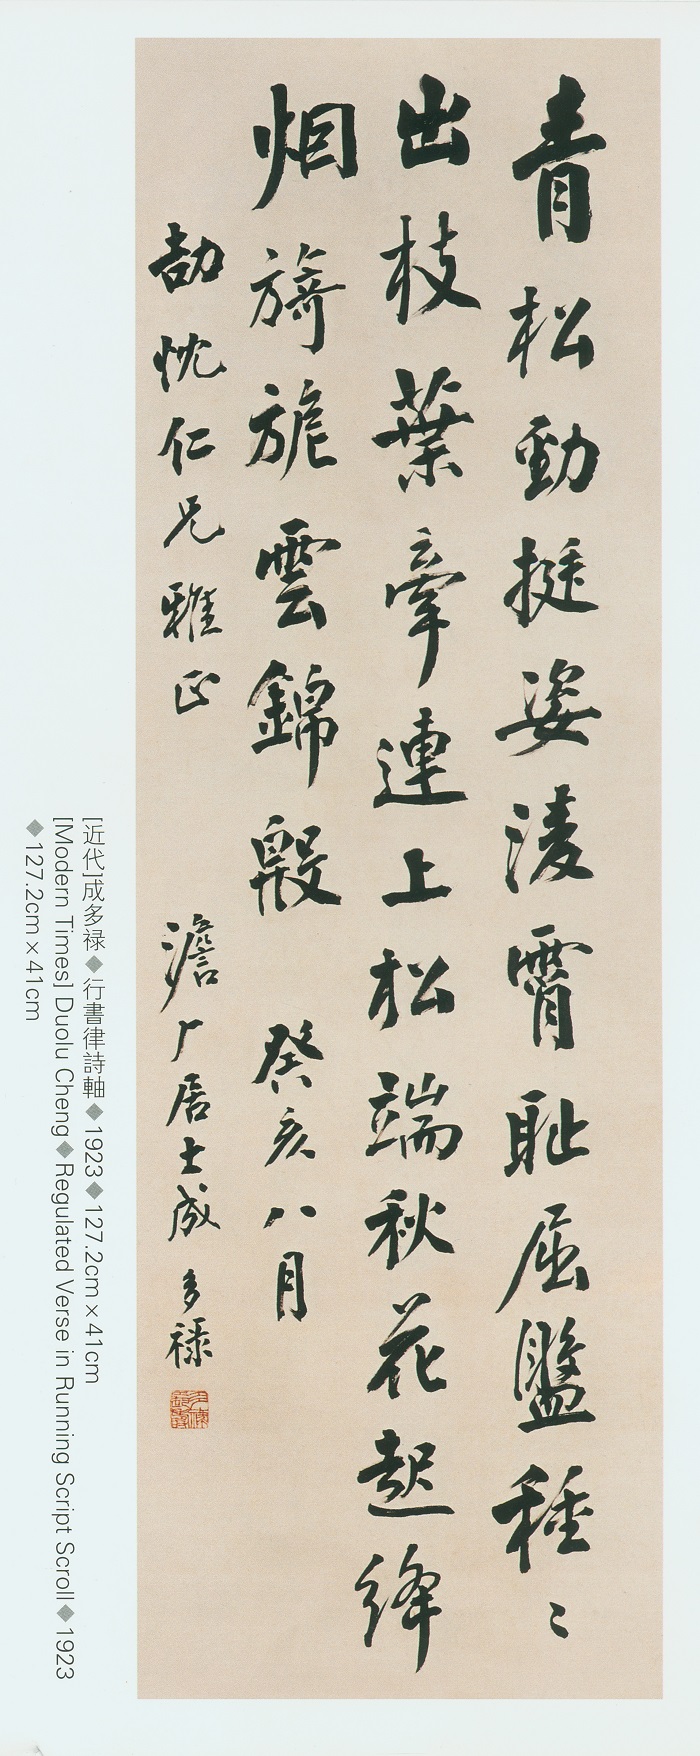 青松勁挺姿淩霄耻屈盤種〻
出枝葉牽連上松端秋花起絳
烟旖旎雲錦殷 癸亥八月
劼忱仁兄雅正 澹厂居士成多禄
[近代]成多禄◆行書律詩軸◆1923◆127.2cm×41cm
[Modern Times] Duolu Cheng◆Regulated Verse in Running Script Scroll◆1923
◆127.2cm×41cm